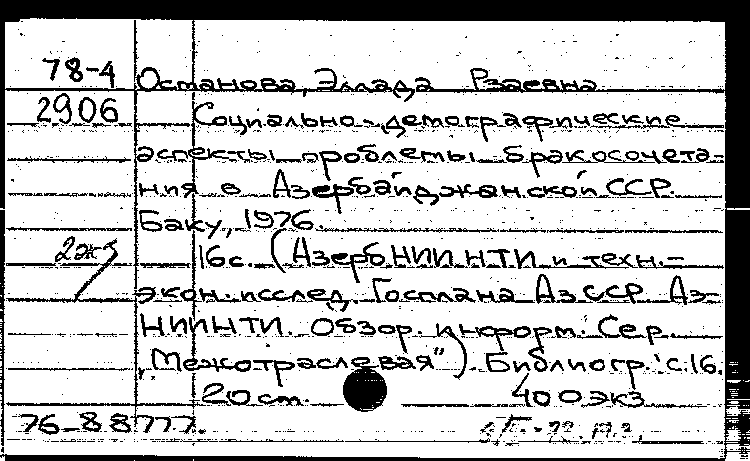 78-4 Останова, Эллада Рзаевна
2906 Социально-демографические
аспекты проблемы бракосочета-
ния в Азербайджанской ССР.
Баку, 1976.
2экз 16с. (АзербНИИНТИ и техн.-
экон. исслед. Госплана АзССР. Аз-
НИИНТИ. Обзор. информ. Сер.
„Межотраслевая"). Библиогр.: с.16.
20 см. 400 экз
76-88777.